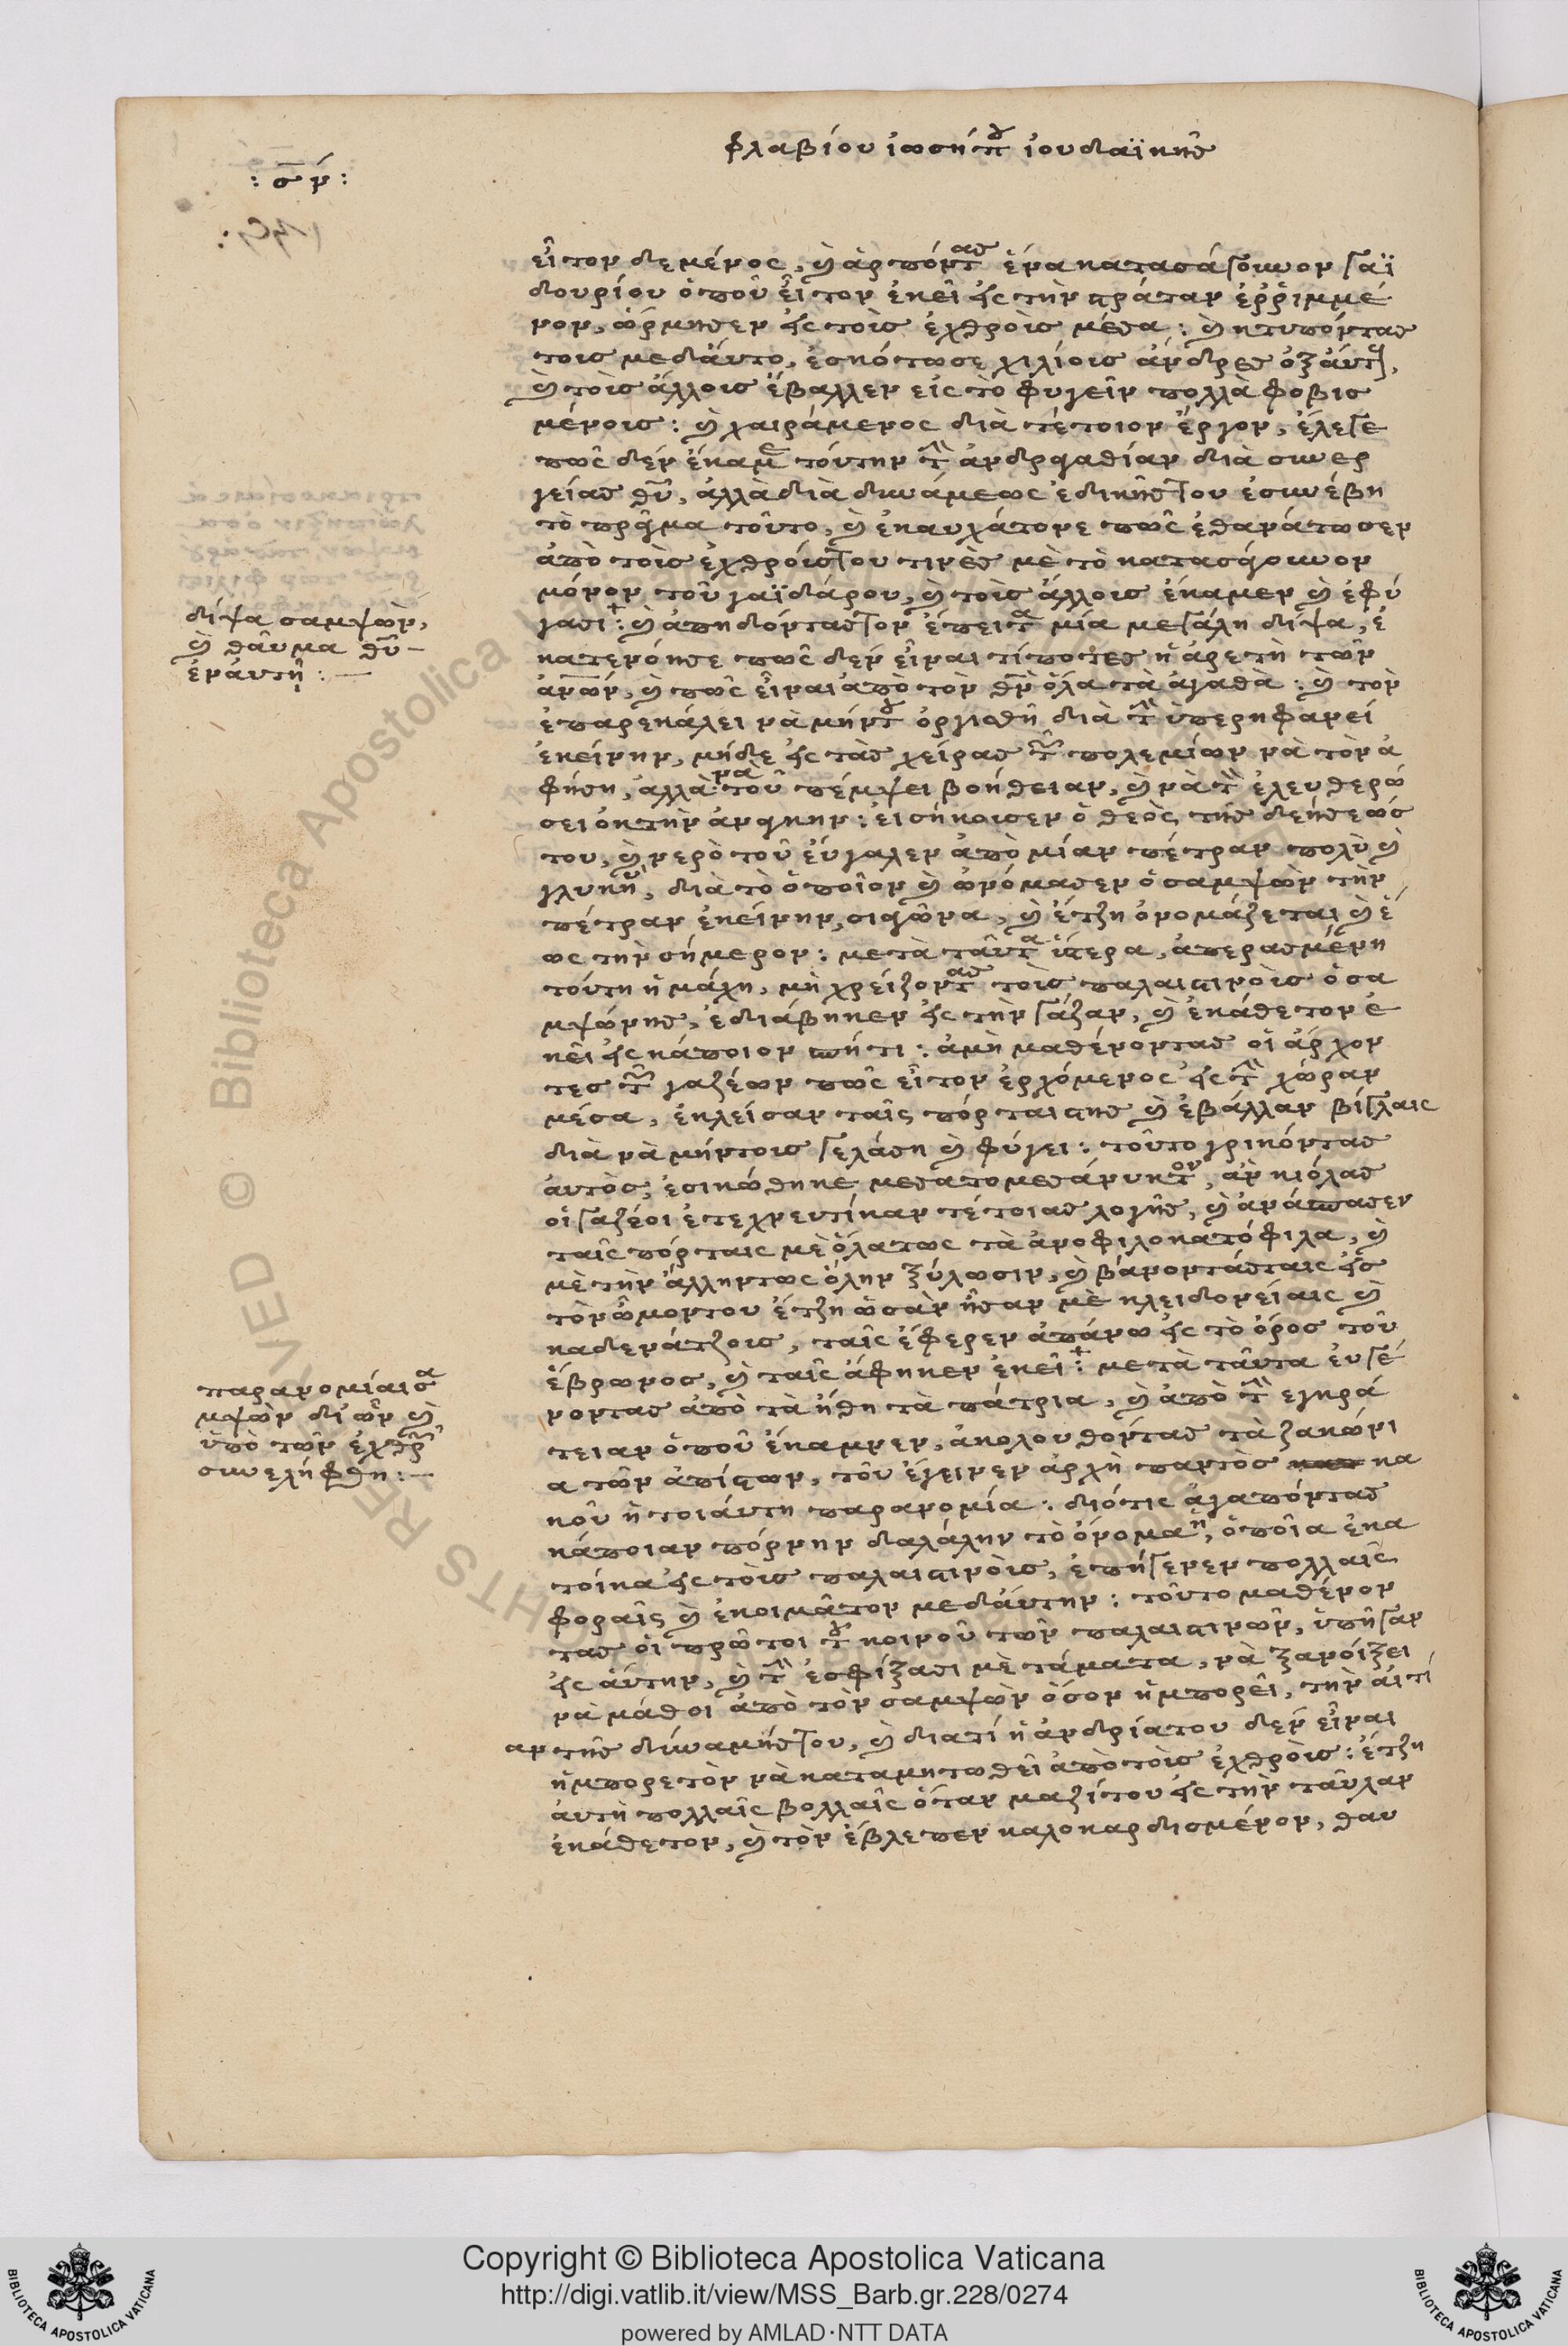 φλαβίου ἰωσήπου ἰουδαϊκῆς
: σν :
εἶτον δεμένος, καὶ ἁρπόντας ἕνα κατασάγουνον γαϊ
δουρίου ὁποῦ εἶτον ἐκεῖ εἰς τὴν στράταν ἐρριμμέ
νον, ὥρμησεν εἰς τοῖς ἐχθροῖς μέσα: καὶ κτυπόντας
τοις μεδαύτο, ἐσκότωσε χιλίοις ἄνδρες ὀξαύτων,
καὶ τοῖς ἄλλοις ἔβαλλεν εἰς τὸ φυγεῖν πολλὰ φοβισ
μένοις: καὶ χαιράμενος διὰ τέτοιον ἔργον, ἔλεγε
πῶς δὲν ἔκαμε τούτην τὴν ἀνδραγαθίαν διὰ συνερ
γείας θυ, ἀλλὰ διὰ δυνάμεως ἐδικῆς του ἐσυνέβη
τὸ πρᾶγμα τοῦτο, καὶ ἐκαυχάτονε πῶς ἐθανάτωσεν
ἀπὸ τοῖς ἐχθρούς του τινὲς μὲ τὸ κατασάγουνον
μόνον τοῦ γαϊδάρου, καὶ τοῖς ἄλλοις ἔκαμεν καὶ ἐφύ
γασι: καὶ ἀπηδόντας τον ἔπειτα μία μεγάλη δίψα, ἐ
κατενόησε πῶς δὲν εἶναι τίποτες ἡ ἀρετὴ τῶν
ἀνων, καὶ πῶς εἶναι ἀπὸ τὸν θν ὅλα τὰ ἀγαθά: καὶ τὸν
ἐπαρεκάλει νὰ μήν του ὀργισθῆ διὰ τὴν ὑπερηφανεί
ἐκείνην, μήδε εἰς τὰς χείρας τῶν πολεμίων νὰ τὸν ἀ
φήση, ἀλλὰ νὰ τοῦ πέμψει βοήθειαν, καὶ νὰ τὸν ἐλευθερώ
σει ὀκτὴν ἀνάγκην: εἰσήκουσεν ὁ θεὸς τῆς δεήσεώς
του, καὶ νερὸ τοῦ εὔγαλεν ἀπὸ μίαν πέτραν πολὺ καὶ
γλυκὺ, διὰ τὸ ὁποῖον καὶ ὠνόμασεν ὁ σαμψὼν τὴν
πέτραν ἐκείνην, σιαγῶνα, καὶ ἔτζη ὀνομάζεται καὶ ἕ
ως τὴν σήμερον: μετὰ ταῦτα ὕστερα, ἀπερασμένη
τούτη ἡ μάχη, μὴ χρείζοντας τοῖς παλαιστινοῖς ὁ σα
μψώνης, ἐδιάβηκεν εἰς τὴν γάζαν, καὶ ἐκάθετον ἐ
κεῖ εἰς κάποιον σπήτι: ἀμὴ μαθένοντας οἱ ἄρχον
τες τῶν γαζέων πῶς εἶτον ἐρχόμενος εἰς τὴν χώραν
μέσα, ἐκλείσαν ταῖς πόρταις της καὶ ἐβάλλαν βίγλαις
διὰ νὰ μήντοις γελάση καὶ φύγει: τοῦτο γρικόντας
αὐτὸς, ἐσικώθηκε μεσατομεσάνυκτον, ἂν κιόλας
οἱ γαζέοι ἐτεχνευτίκαν τέτοιας λογῆς, καὶ ἀνάσπασεν
ταῖς πόρταις μὲ ὅλατως τὰ ἀνοφιλοκατόφιλα, καὶ
μὲ τὴν ἄλληντως ὅλην ξύλωσιν, καὶ βάνονταςταις εἰς
τὸν ὦμοντου ἔτζη ὡσὰν ἦσαν μὲ κλειδονείαις καὶ
καδενάτζοις, ταῖς ἔφερεν ἀπάνω εἰς τὸ ὄρος τοῦ
ἑβρωνος, καὶ ταῖς ἄφηκεν ἐκεῖ: μετὰ ταῦτα εὐγέ
νοντας ἀπὸ τὰ ἤθη τὰ πάτρια, καὶ ἀπὸ τὴν εγκρά
τειαν ὁποῦ ἔκαμνεν, ἀκολουθόντας τὰ ζακώνι
α τῶν ἀπίστων, τοῦ ἔγεινεν ἀρχὴ παντὸς κα
κοῦ ἡ τοιαύτη παρανομία: διότις ἀγαπόντας
κάποιαν πόρνην δαλάλην τὸ ὄνομα, ὁποῖα ἐκα
τοίκα εἰς τοῖς παλαιστινοῖς, ἐπήγενεν πολλαῖς
φοραῖς καὶ ἐκοιμᾶτον μεδαύτην: τοῦτο μαθένον
τας οἱ πρῶτοι τοῦ κοινοῦ τῶν παλαιστινῶν, ὑπῆγαν
εἰς αὐτην, καὶ τὴν ἐσφίξασι μὲ τάματα, νὰ ξανοίξει
νὰ μάθοι ἀπὸ τὸν σαμψὼν ὅσον ἡμπορεῖ, τὴν αἰτί
αν τῆς δυναμήςτου, καὶ διατί ἡ ἀνδρίατου δὲν εἶναι
ἡμπορετὸν νὰ καταμητωθεῖ ἀπὸ τοῖς ἐχθροῖς: ἔτζη
αὐτὴ πολλαῖς βολλαῖς ὅταν μαζίτου εἰς τὴν ταῦλαν
ἐκάθετον, καὶ τὸν ἔβλεπεν καλοκαρδισμένον, θαυ
δίψα σαμψὼν,
καὶ θαῦμα θυ
ἐν αὐτῆ: —
παρανομίαι σα
μψὼν δι' ὧν καὶ
ὑπὸ τῶν ἐχθρῶν
συνελήφθη: —
RESERVED © Biblioteca Apostolica
Copyright © Biblioteca Apostolica Vaticana
http://digi.vatlib.it/view/MSS_Barb.gr.228/0274
powered by AMLAD·NTT DATA
BIBLIOTECA APOSTOLICA VATICANA
BIBLIOTECA APOSTOLICA VATICANA